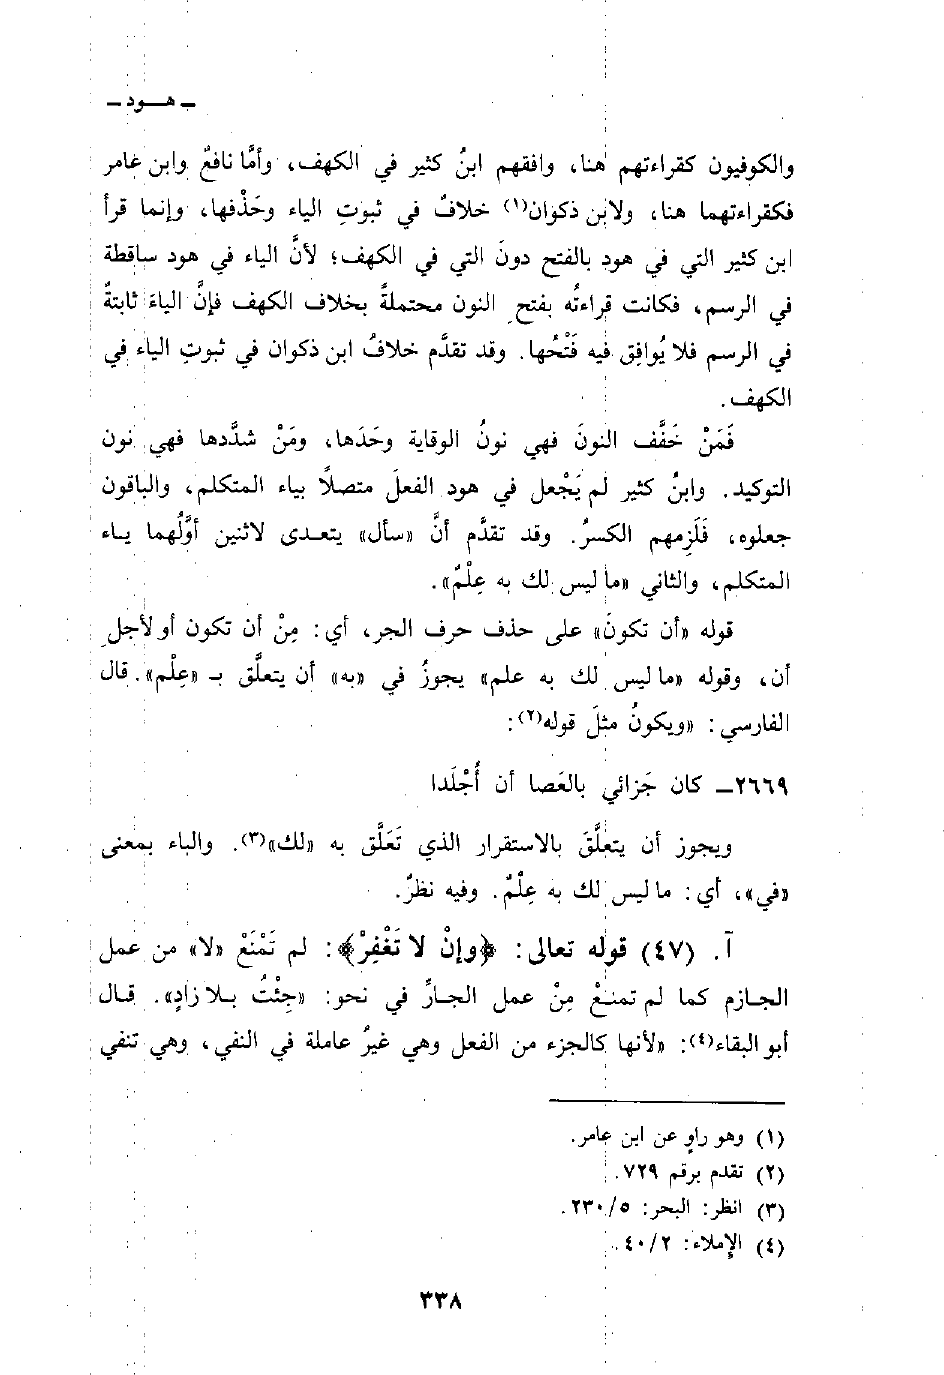 ـ هـود ـ
والكوفيون كقراءتهم هنا، وافقهم ابنُ كثير في الكهف، وأمَّا نافعٌ وابن عامر
فكقراءتهما هنا، ولابن ذكوان(١) خلافٌ في ثبوتِ الياء وحَذْفها، وإنما قرأ
ابن كثير التي في هود بالفتح دونَ التي في الكهف؛ لأنَّ الياء في هود ساقطة
في الرسم، فكانت قراءتُه بفتحِ النون محتملةً بخلاف الكهف فإنَّ الياءَ ثابتةٌ
في الرسم فلا يُوافِق فيه فَتْحُها. وقد تقدَّم خلافُ ابن ذكوان في ثبوتِ الياء في
الكهف.
فَمَنْ خَفَّف النونَ فهي نونُ الوقاية وحَدَها، ومَنْ شدَّدها فهي نون
التوكيد. وابنُ كثير لم يَجْعل في هود الفعلَ متصلاً بياء المتكلم، والباقون
جعلوه، فَلَزِمهم الكسرُ. وقد تقدَّم أنَّ «سأل» يتعـدى لاثنين أوَّلُهما يـاء
المتكلم، والثاني «ما ليس لك به عِلْمٌ».
قوله «أن تكونَ» على حذف حرف الجر، أي: مِنْ أن تكون أو لأجلِ
أن، وقوله «ما ليس لك به علم» يجوزُ في «به» أن يتعلَّق بـ «عِلْم». قال
الفارسي: «ويكونُ مثلَ قوله(٢):
٢٦٦٩ـ كان جَزائي بالعَصا أن أُجْلَدا
ويجوز أن يتعلَّقَ بالاستقرار الذي تَعَلَّق به «لك»(٣). والباء بمعنى
«في»، أي: ما ليس لك به عِلْمٌ. وفيه نظرٌ.
آ. (٤٧) قوله تعالى: ﴿وإنْ لا تَغْفِرْ﴾: لم تَمْنَعْ «لا» من عمل
الجـازم كما لم تمنـعْ مِنْ عمل الجـارِّ في نحو: «جِئْتُ بـلا زادٍ». قـال
أبو البقاء(٤): «لأنها كالجزء من الفعل وهي غيرُ عاملة في النفي، وهي تنفي
(١) وهو راوٍ عن ابن عامر.
(٢) تقدم برقم ٧٢٩.
(٣) انظر: البحر: ٢٣٠/٥.
(٤) الإملاء: ٤٠/٢.
٣٣٨